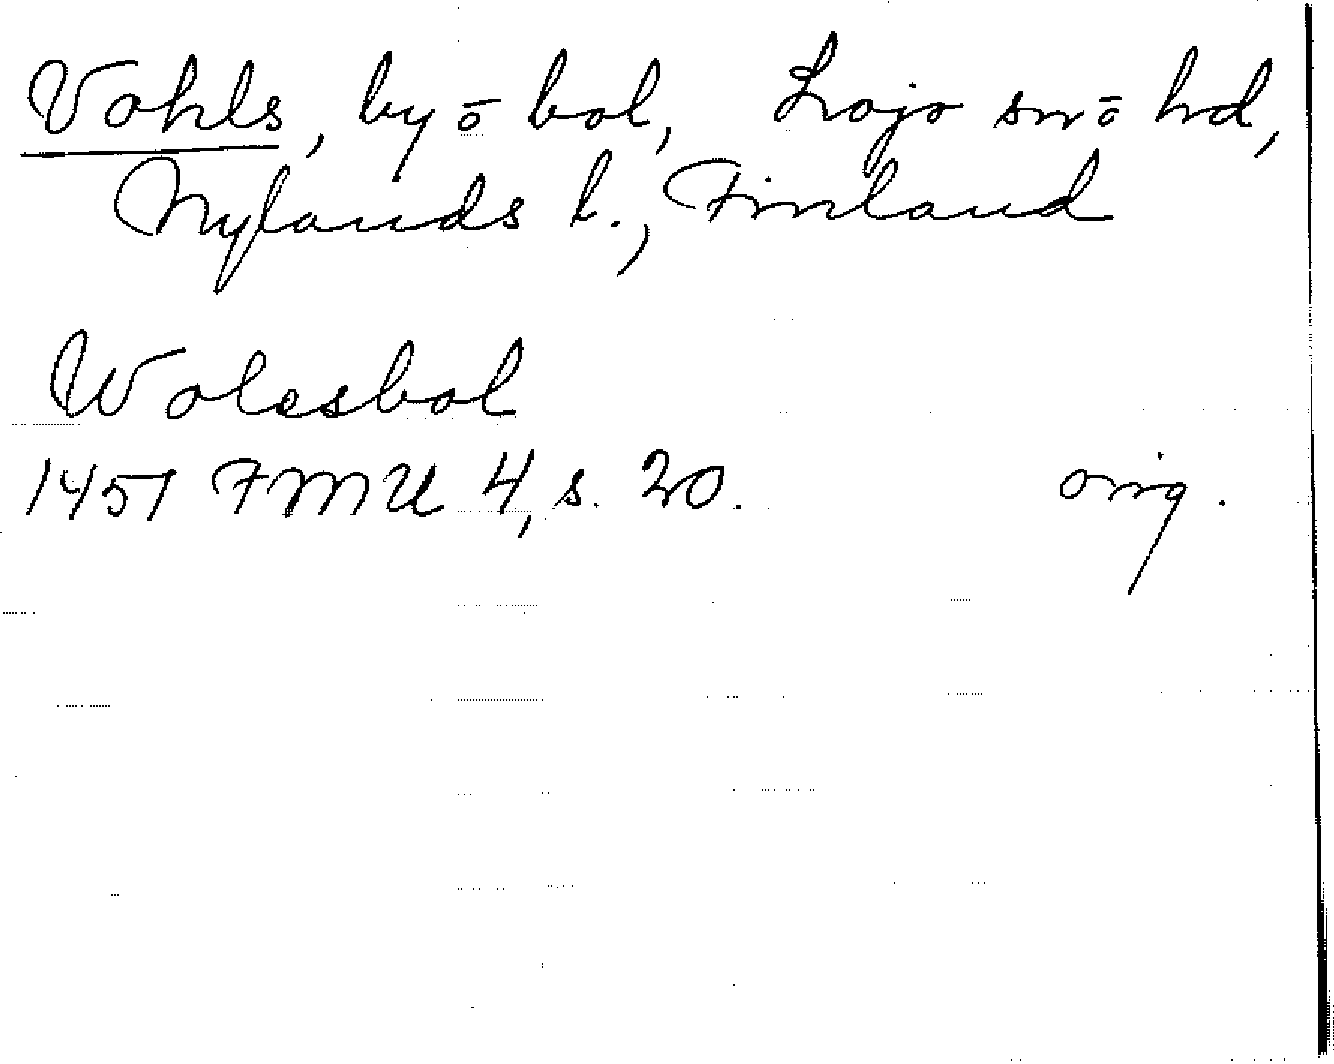 Vohls, by ō bol, Lojo sn ō hd,
Nylands l., Finland
Wolesbol
1451 FMU 4, s. 20. orig.